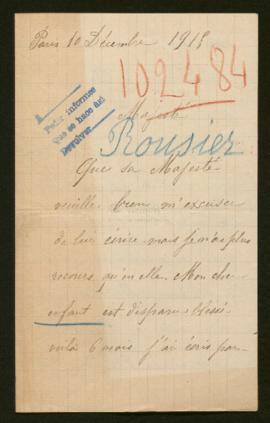 Paris 10 Décembre 1915
102484
Pedir informes
que se hace así
Devolver
Majesté
Rousier
Que sa Majesté
veuille bien m'excuser
de lui écrire mais je n'ai plus
recours qu'en elle. Mon cher
enfant est disparu blessé
voilà 6 mois j'ai écris par-